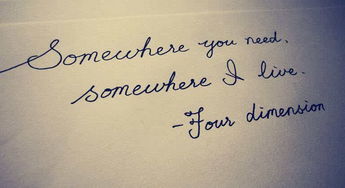 Somewhere you need,
somewhere I live.
-Four dimension